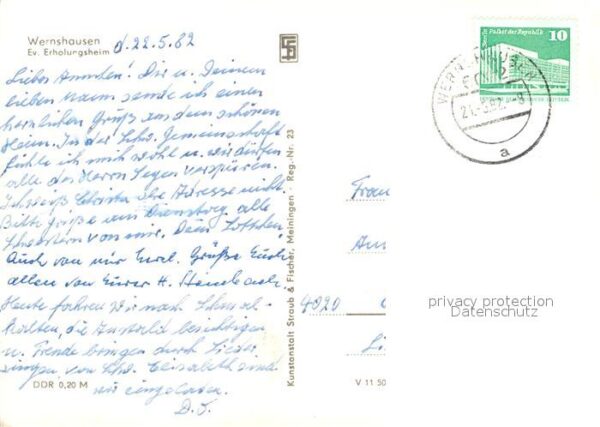 Wernshausen
Ev. Erholungsheim
d. 22.5.82
Liebes Ännchen! Dir u. Deinem
lieben Mann sende ich einen
herzlichen Gruß aus dem schönen
Heim. In der Schw. Gemeinschaft
fühle ich mich wohl u. wir dürfen
alle des Herrn Segen verspüren.
Ich weiß Christa ihre Adresse nicht.
Bitte grüße am Dienstag alle
Schwestern von mir. Dein Lottchen
Auch von mir Grüße Euch
allen von Eurer H.
Heute fahren wir nach Schmal-
kalden, die Anstalt besichtigen
u. Freude bringen durch Lieder
singen, von Schw. Elisabeth sind
wir eingeladen.
D. O.
DDR 0,20 M
Kunstanstalt Straub & Fischer, Meiningen · Reg.-Nr. 23
V 11 50
Palast der Republik
10
WERNSHAUSEN
a
Frau
4020
privacy protection
Datenschutz